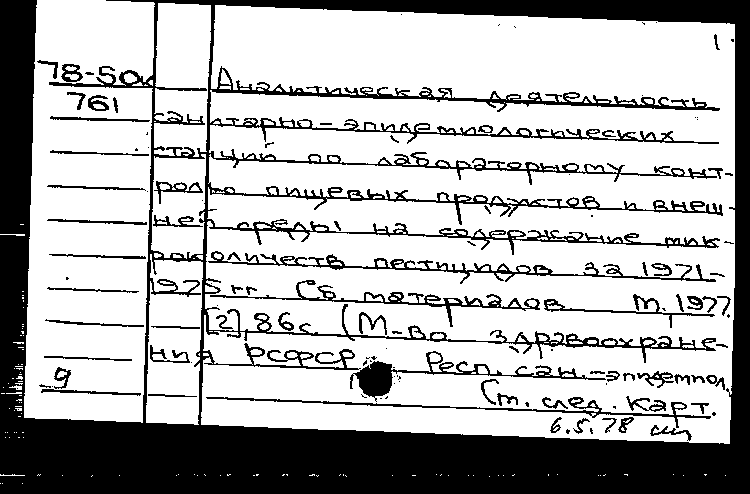 1
78-50к Аналитическая деятельность
761 санитарно-эпидемиологических
станций по лабораторному конт-
ролю пищевых продуктов и внеш-
ней среды на содержание мик-
роколичеств пестицидов за 1971-
1975 гг. Сб. материалов М. 1977.
[2], 86 с. (М-во здравоохране-
ния РСФСР. Респ. сан.-эпидемиол.
9 См. след. карт.
6.5.78